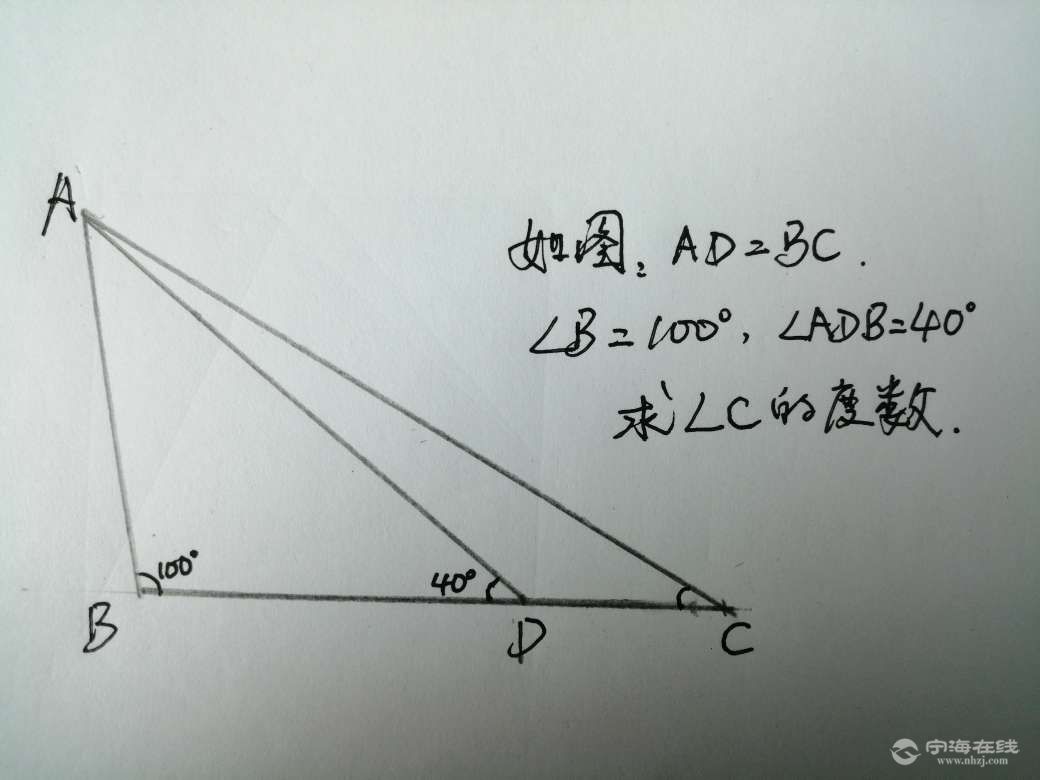 A
如图，AD=BC.
∠B=100°，∠ADB=40°
求∠C的度数.
100°
40°
B
D
C
宁海在线
www.nhzj.com